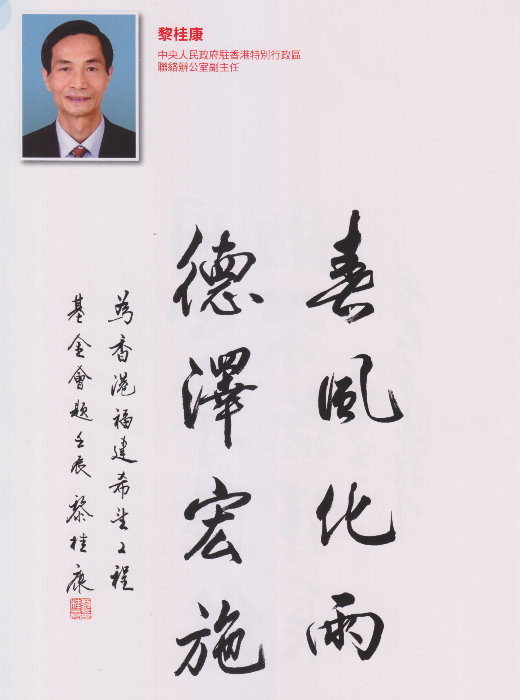 黎桂康
中央人民政府駐香港特別行政區
聯絡辦公室副主任
春風化雨
德澤宏施
為香港福建希望工程
基金會題壬辰黎桂康